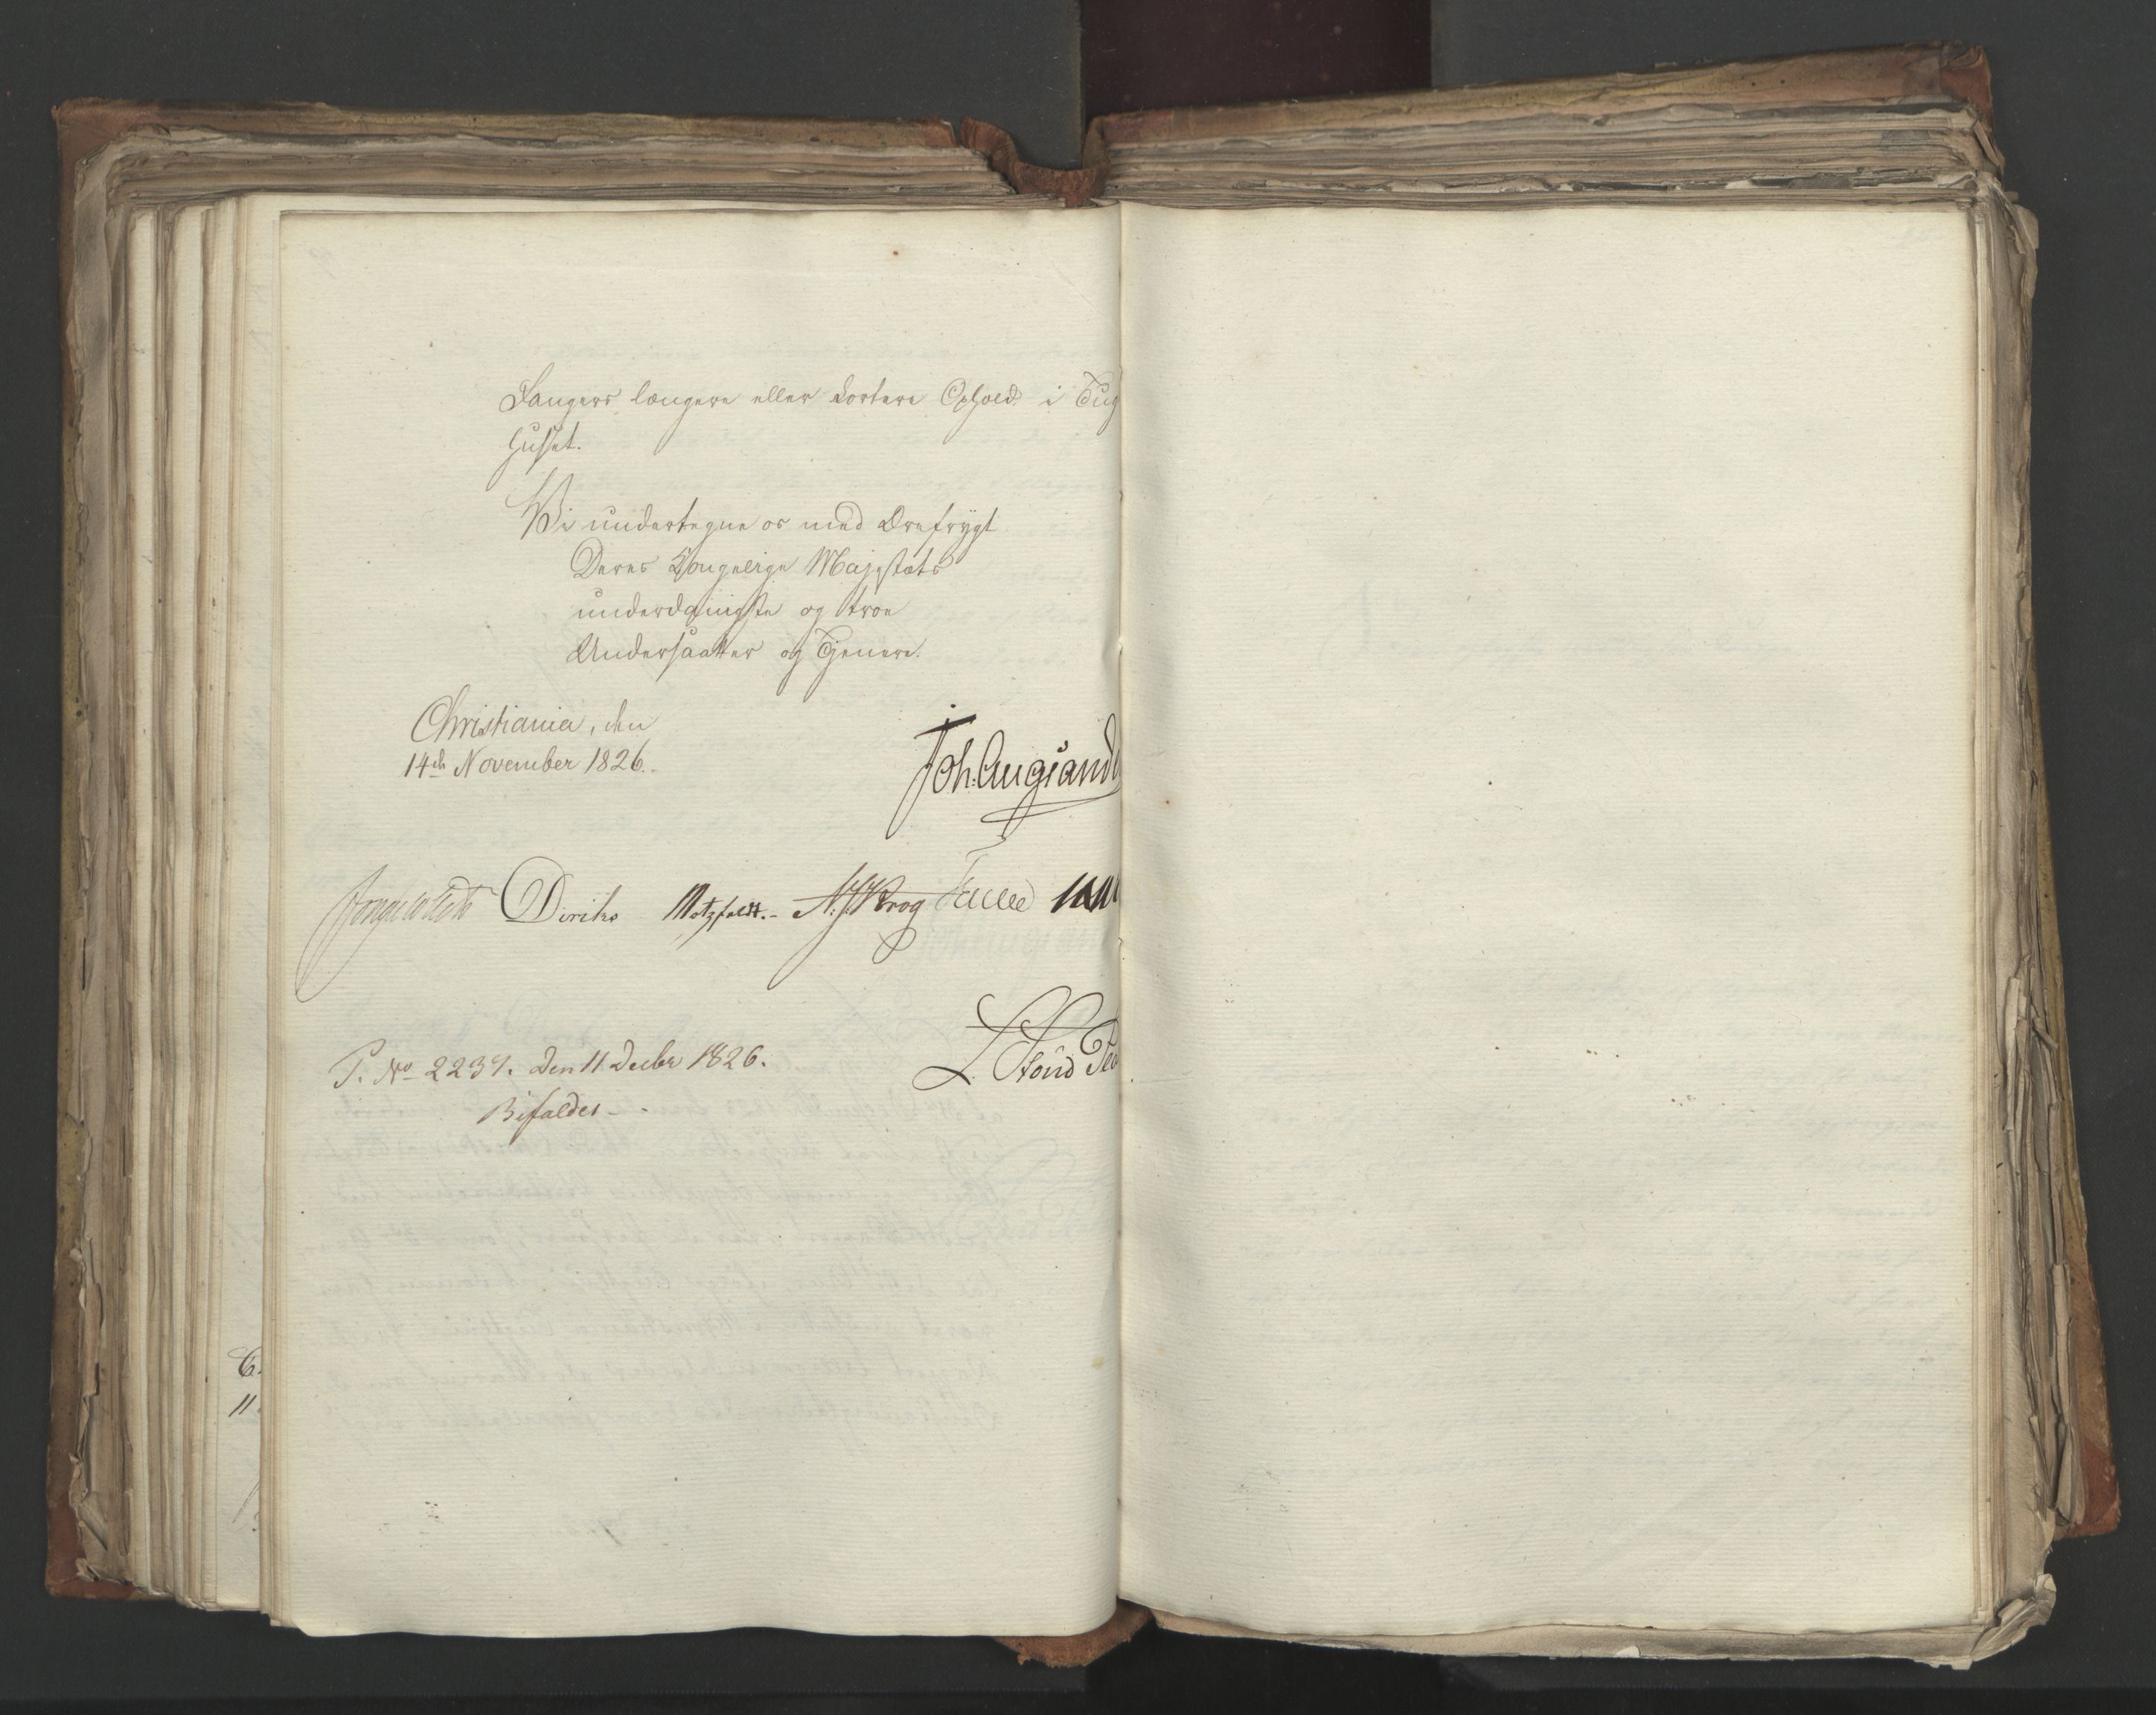 Fangers længere eller kortere Ophold i Tug
huset.
Vi undertegne os med Ærefrygt
Deres Kongelige Majestæts
underdanigste og troe
Undersaatter og Tjenere.
Christiania, den
14de November 1826.
Joh. Aug. Sand
Diriks Motzfeldt.- N. J. Krog
L. Stoud Pla
P. No 2237. den 11 Decbr 1826.
Bifaldes -